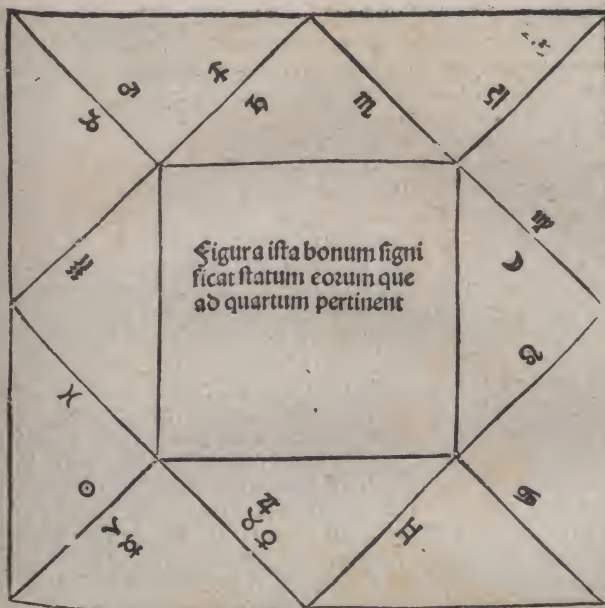 Figura ista bonum signi
ficat statum eorum que
ad quartum pertinent